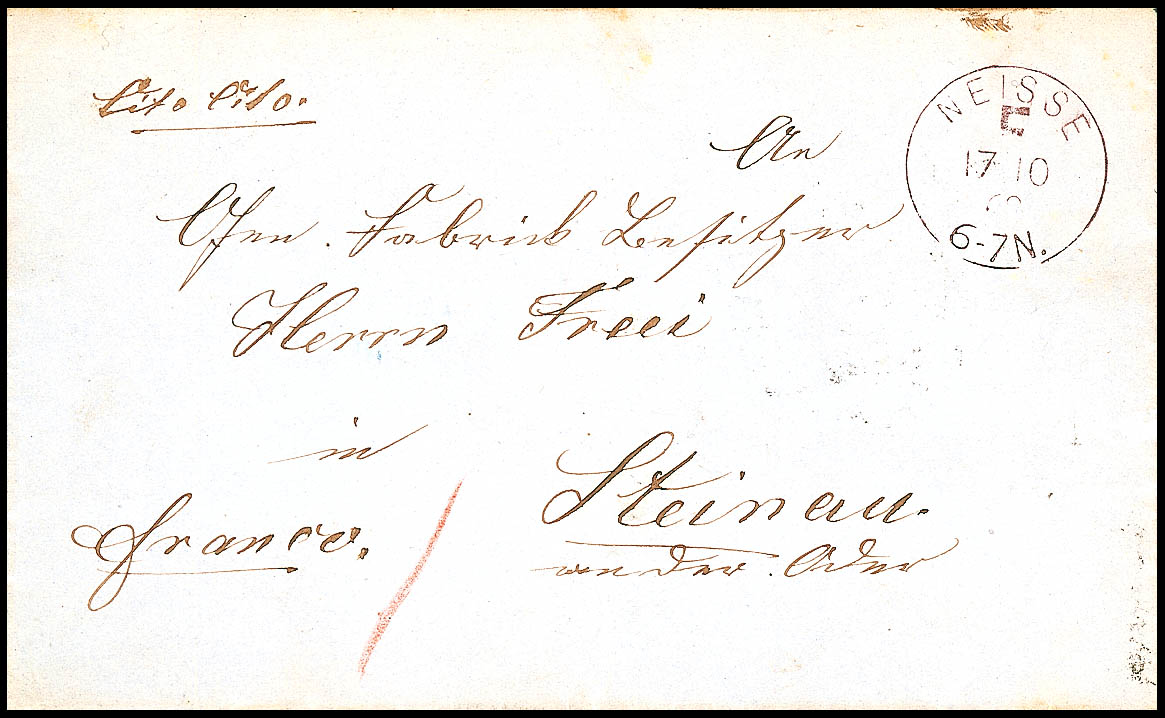 Cito Cito.
NEISSE
E
17 10
6-7N.
An
Ofen. Fabrick Besitzer
Herrn Freei
in
Steinau.
franco.
an der. Oder